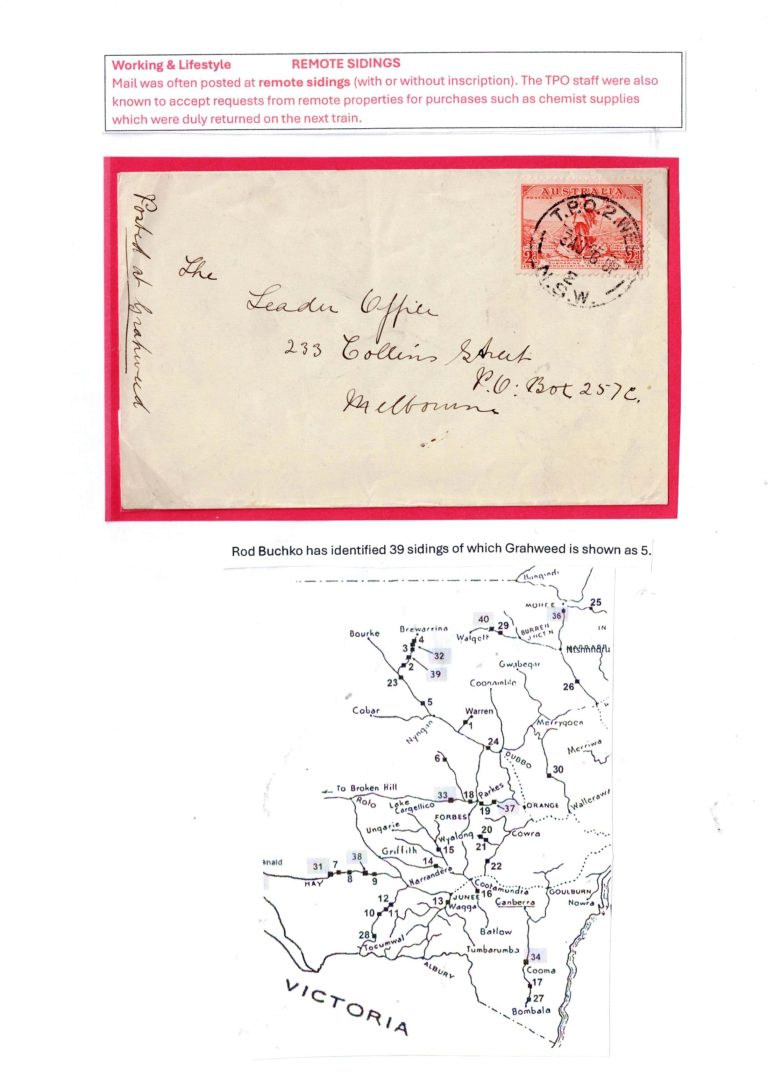 Working & Lifestyle REMOTE SIDINGS
Mail was often posted at remote sidings (with or without inscription). The TPO staff were also
known to accept requests from remote properties for purchases such as chemist supplies
which were duly returned on the next train.
Posted at Grahweed
AUSTRALIA
T.P.O. 2. WEST
N.S.W.
The
Leader Office
233 Collins Street
P.O. Box 257C.
Melbourne
Rod Buchko has identified 39 sidings of which Grahweed is shown as 5.
MOREE
25
36
40
29
Brewarrina
4
Bourke
Walgett
BURREN
IN
3
32
2
39
Gwabegar
23
Coonamble
26
5
Warren
Cobar
1
Merrygoen
Nyngan
24
Merriwa
DUBBO
6
30
To Broken Hill
33
18
Parkes
Wallerawa
Roto
Lake
Cargellico
19
37
ORANGE
FORBES
Ungarie
20
Cowra
Wyalong
21
15
Griffith
14
22
38
31
7
8
9
Narrandera
HAY
Cootamundra
GOULBURN
16
12
JUNEE
Canberra
Nowra
13
Wagga
10
11
Batlow
28
Tocumwal
Tumbarumba
34
ALBURY
Cooma
17
27
Bombala
VICTORIA